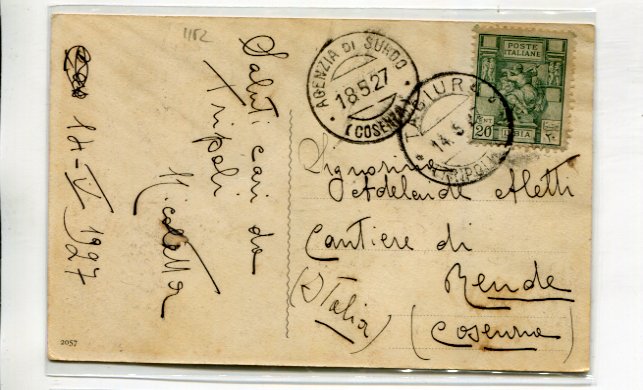 1152
Saluti cari da
Tripoli
Nicoletta
14-V 1927
2057
AGENZIA DI SURDO
18.5.27
(COSENZA)
TAGIURA
14.5
(TRIPOLI
POSTE
ITALIANE
CENT
20
LIBIA
Signorina
Adelaide Aletti
Cantiere di
Rende
(Italia)
(Cosenza)